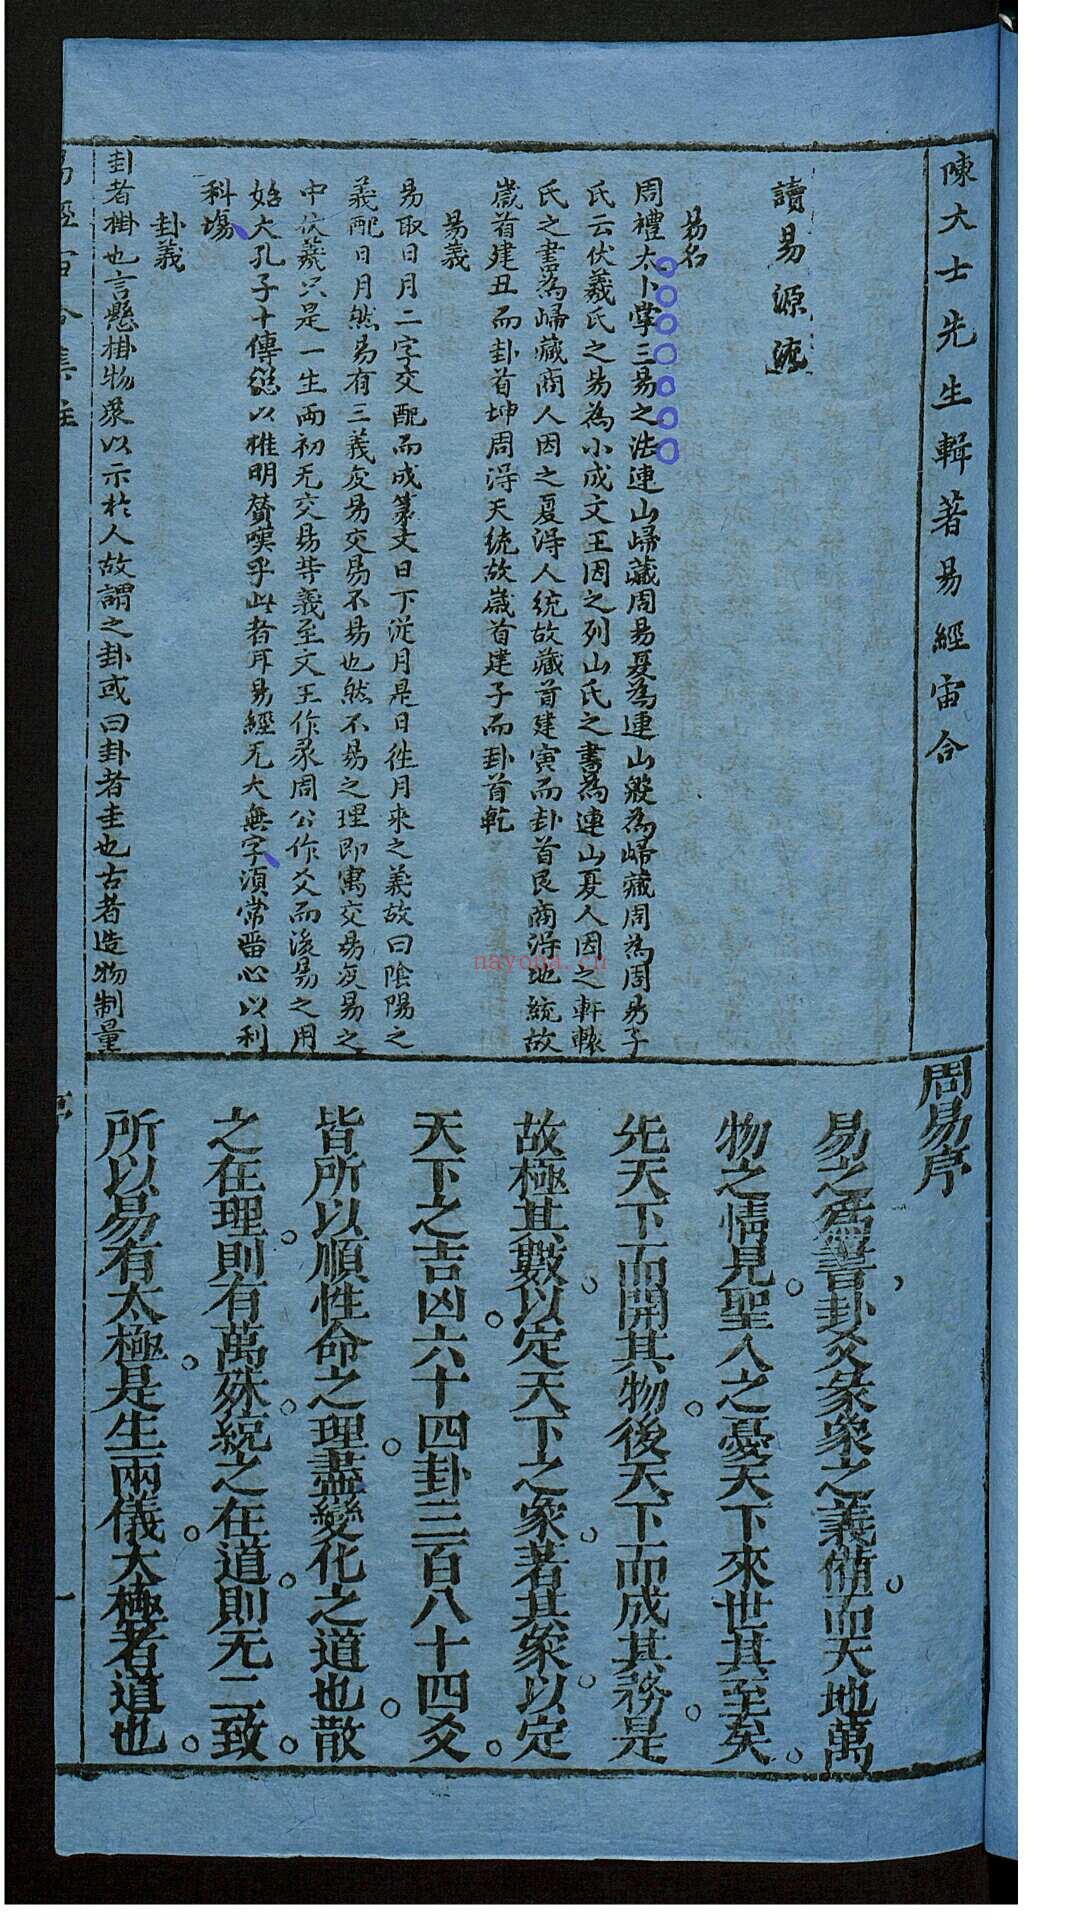 陳大士先生輯著易經宙合
讀易源流
易名
周禮太卜掌三易之法連山歸藏周易夏為連山殷為歸藏周為周易子
氏云伏羲氏之易為小成文王因之列山氏之書為連山夏人因之軒轅
氏之書為歸藏商人因之夏得人統故歲首建寅而卦首艮商得地統故
歲首建丑而卦首坤周得天統故歲首建子而卦首乾
易義
易取日月二字交配而成篆文日下從月是日徃月來之義故曰陰陽之
義配日月然易有三義变易交易不易也然不易之理即寓交易変易之
中伏羲只是一生兩初无交易等義至文王作彖周公作爻而後易之用
始大孔子十傳總以推明贊嘆乎此者耳易經无大無字湏常畱心以利
科塲
卦義
卦者掛也言懸掛物象以示扵人故謂之卦或曰卦者圭也古者造物制量
周易序
易之爲書卦爻彖象之義備而天地萬
物之情見聖人之憂天下來世其至矣
先天下而開其物後天下而成其務是
故極其數以定天下之象著其象以定
天下之吉凶六十四卦三百八十四爻
皆所以順性命之理盡變化之道也散
之在理則有萬殊統之在道則无二致
所以易有太極是生兩儀太極者道也
易經宙合集註
序
一
nayona.cn